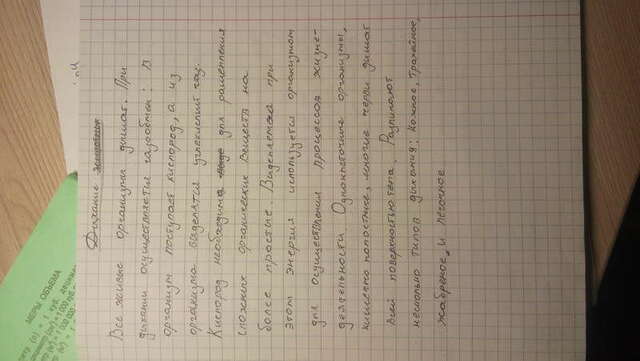 МЕРЫ ОБЪЕМА
Дыхание
Все живые организмы дышат. При
дыхании осуществляется газообмен: В
организм поступает кислород, а из
организма выделятся углекислый газ.
Кислород необходим для расщепления
сложных органических веществ на
более простые. Выделяемая при
этом энергия используется организмом
для осуществления процессов жизне-
деятельности. Одноклеточные организмы,
кишечно полостные, многие черви дышат
всей поверхностью тела. Различают
несколько типов дыхания: Кожное, трахейное,
жаберное, и легочное